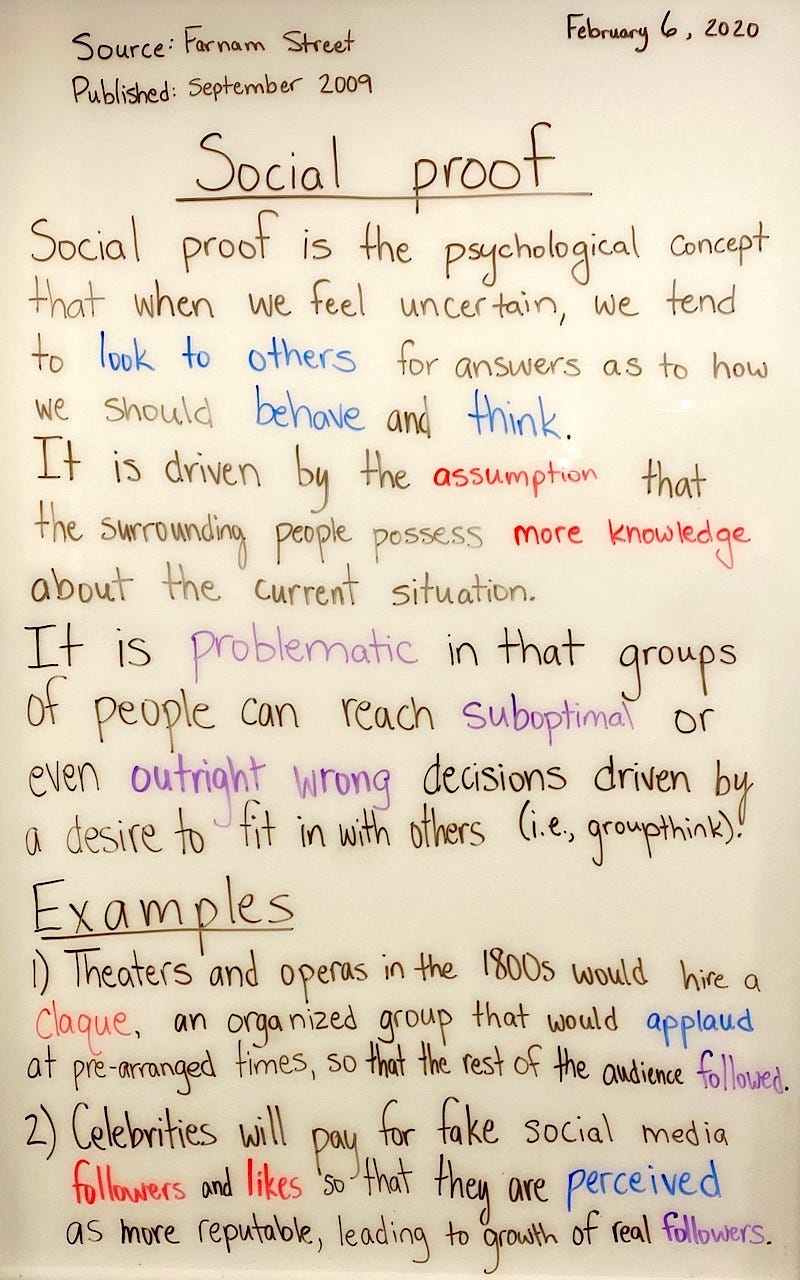 February 6, 2020
Source: Farnam Street
Published: September 2009
Social proof
Social proof is the psychological concept
that when we feel uncertain, we tend
to look to others for answers as to how
we should behave and think.
It is driven by the assumption that
the surrounding people possess more knowledge
about the current situation.
It is problematic in that groups
of people can reach suboptimal or
even outright wrong decisions driven by
a desire to fit in with others (i.e., groupthink).
Examples
1) Theaters and operas in the 1800s would hire a
claque, an organized group that would applaud
at pre-arranged times, so that the rest of the audience followed.
2) Celebrities will pay for fake social media
followers and likes so that they are perceived
as more reputable, leading to growth of real followers.